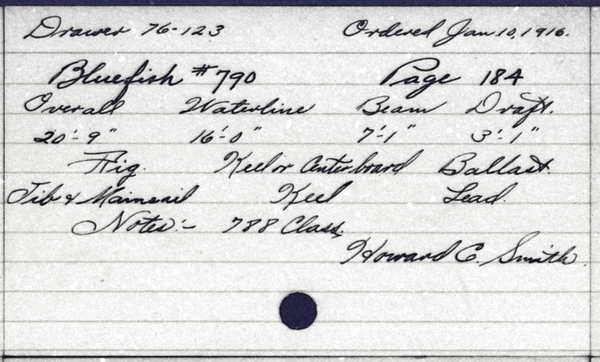 Drawer 76-123 Ordered Jan 10, 1916.
Bluefish #790 Page 184
Overall Waterline Beam Draft.
20'-9" 16'-0" 7'-1" 3'-1"
Rig. Keel or Centerboard Ballast
Jib & Mainsail Keel Lead.
Notes:- 788 Class.
Howard C. Smith